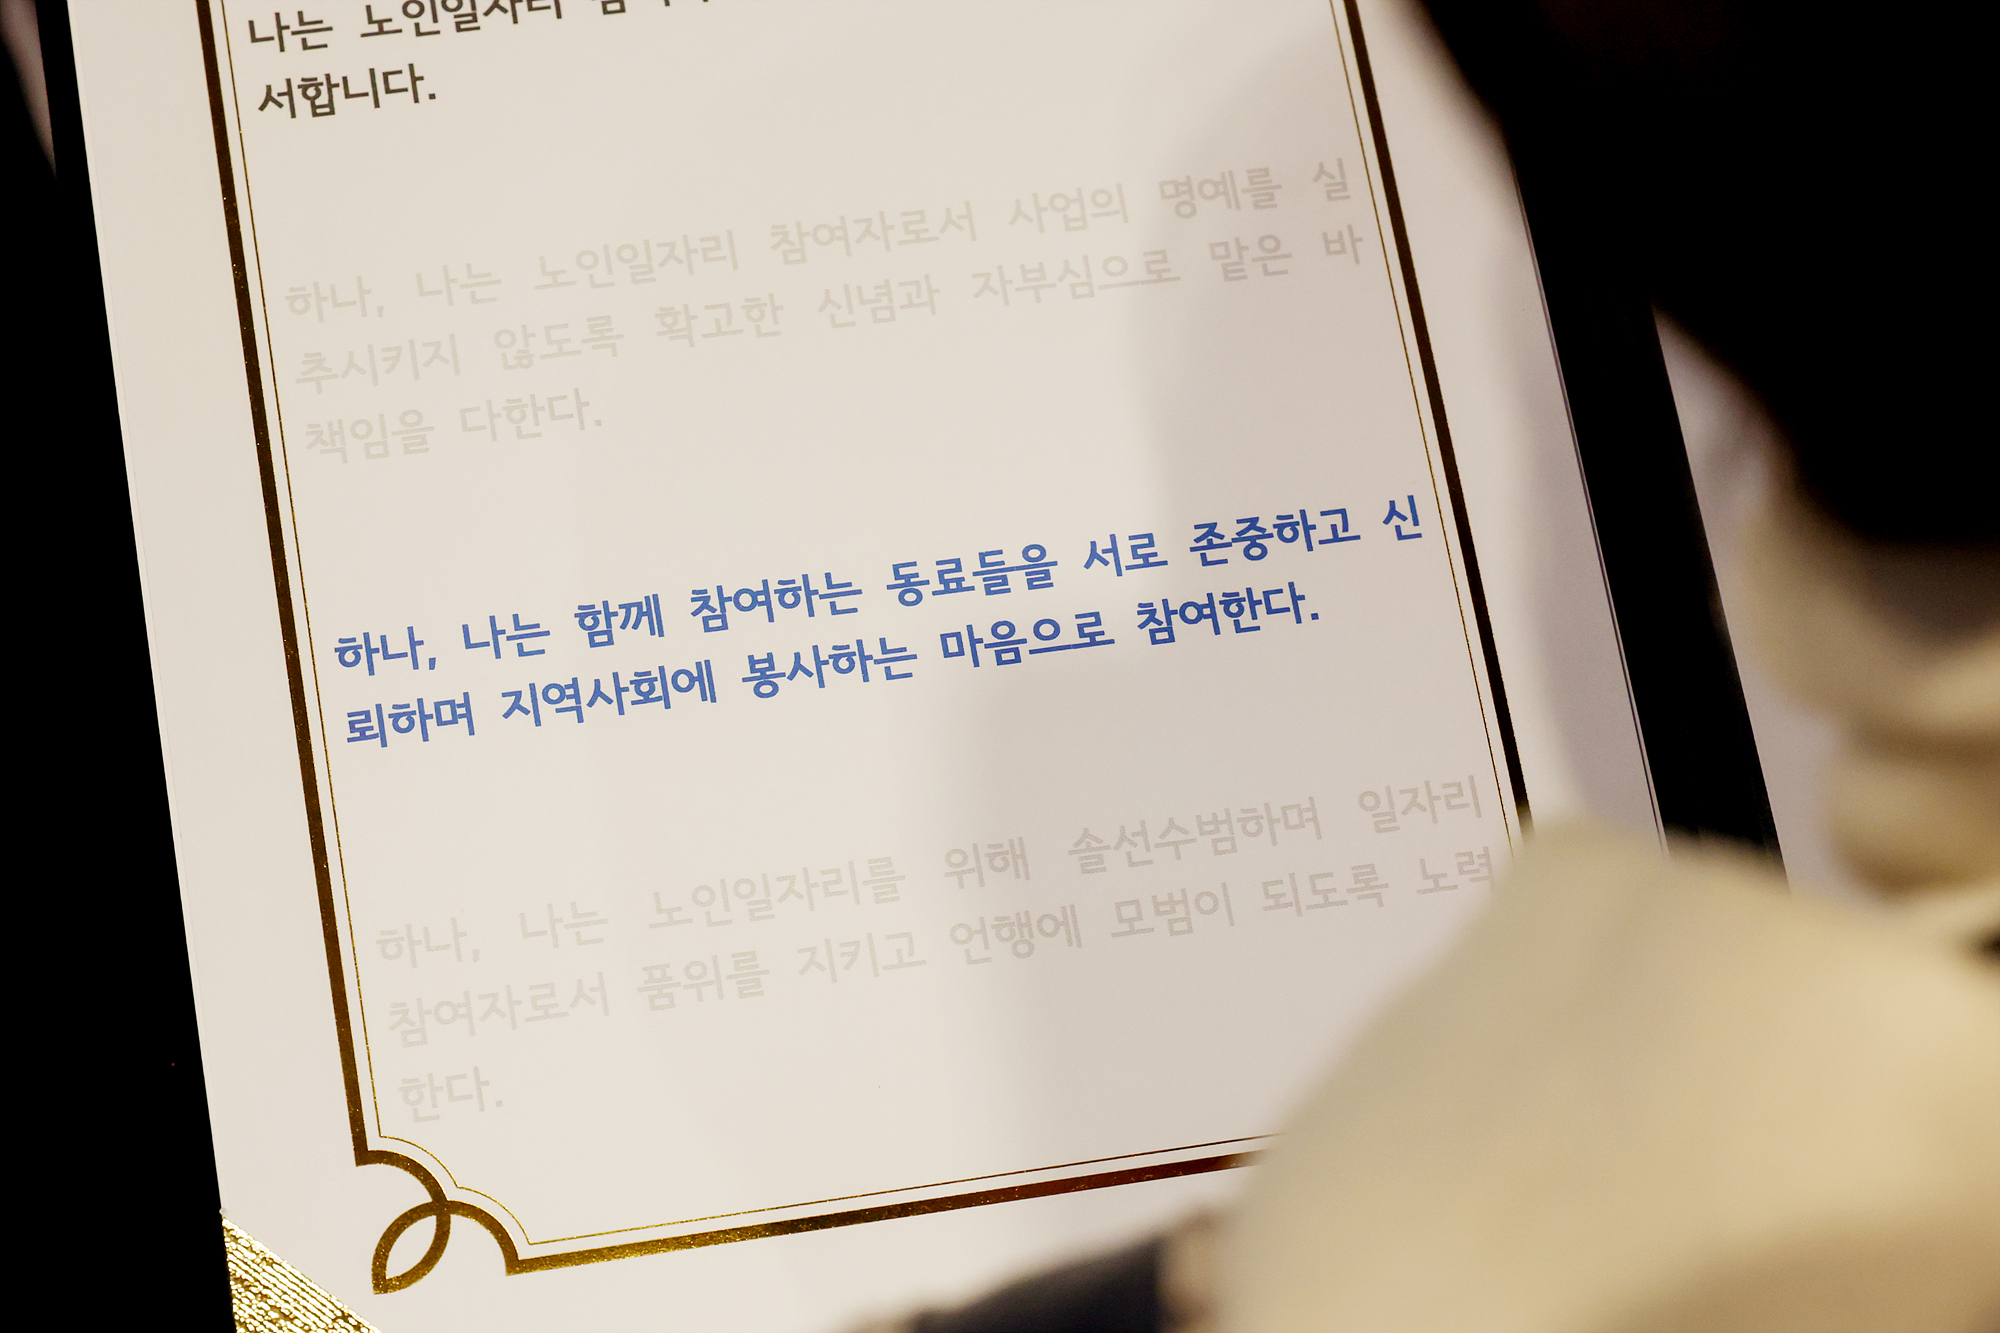 나는 노인일자리
서합니다.
하나, 나는 노인일자리 참여자로서 사업의 명예를 실
추시키지 않도록 확고한 신념과 자부심으로 맡은 바
책임을 다한다.
하나, 나는 함께 참여하는 동료들을 서로 존중하고 신
뢰하며 지역사회에 봉사하는 마음으로 참여한다.
하나, 나는 노인일자리를 위해 솔선수범하며 일자리
참여자로서 품위를 지키고 언행에 모범이 되도록 노력
한다.